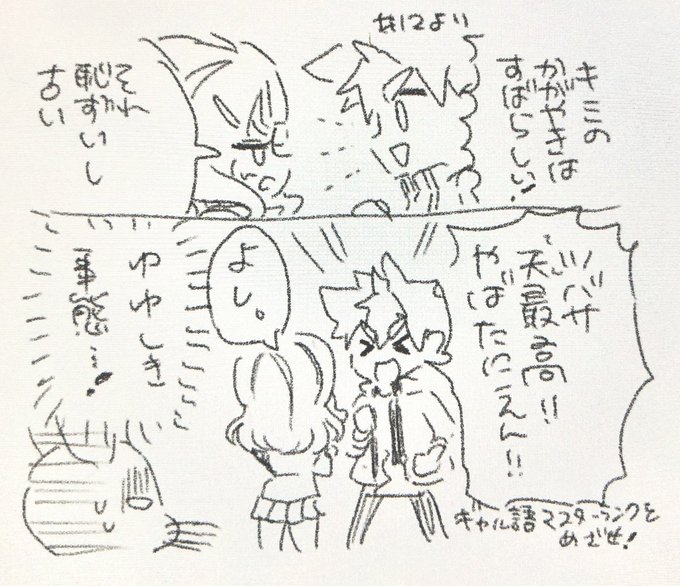 #12より
キミの
かがやきは
すばらしい!
それ
恥ずいし
古い
ツバサ
天最高!!
やばたにえん!!
よし。
ゆゆしき
事態…!
ギャル語マスターランクを
めざせ!